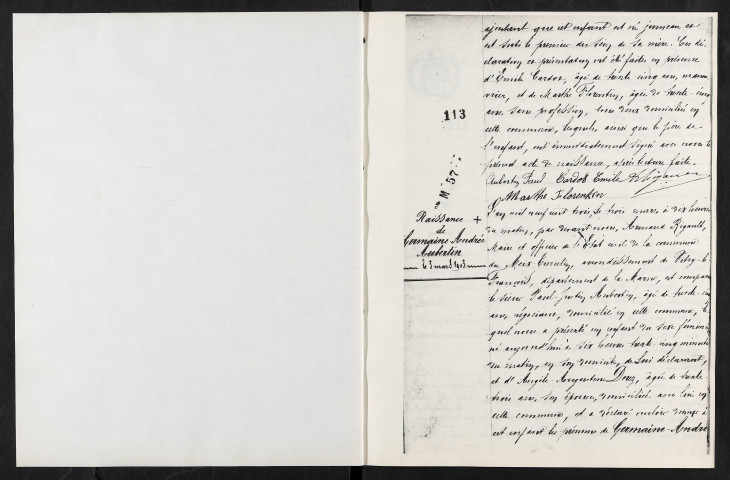 ajoutant que cet enfant est né jumeau et
est sorti le premier du sein de sa mère. Ces dé
clarations et présentation ont été faites en présence
d'Emile Cardot, âgé de trente cinq ans, manou
vrier, et de Marthe Florentin, âgée de trente-cinq
ans, sans profession, tous deux domiciliés en
cette commune, lesquels, ainsi que le père de
l'enfant, ont immédiatement signé avec nous le
présent acte de naissance, après lecture faite.
Aubertin Paul Cardot Emile
Marthe Florentin
113
M 57
Naissance +
de
Germaine Andrée
Aubertin
le 3 mars 1903
L'an mil neuf cent trois, le trois mars, à dix heures
du matin, par devant nous, Armand Rigault,
Maire et officier de l'Etat civil de la commune
du Meix Tiercelin, arrondissement de Vitry-le-
François, département de la Marne, est comparu
le sieur Paul Aubertin, âgé de trente
ans, négociant, domicilié en cette commune, le
quel nous a présenté un enfant du sexe féminin
né aujourd'hui à six heures trente cinq minutes
du matin, en son domicile, de lui déclarant,
et d'Angèle Augustine, âgée de trente
trois ans, son épouse, domiciliée avec lui en
cette commune, et a déclaré vouloir donner à
cet enfant les prénoms de Germaine-Andrée